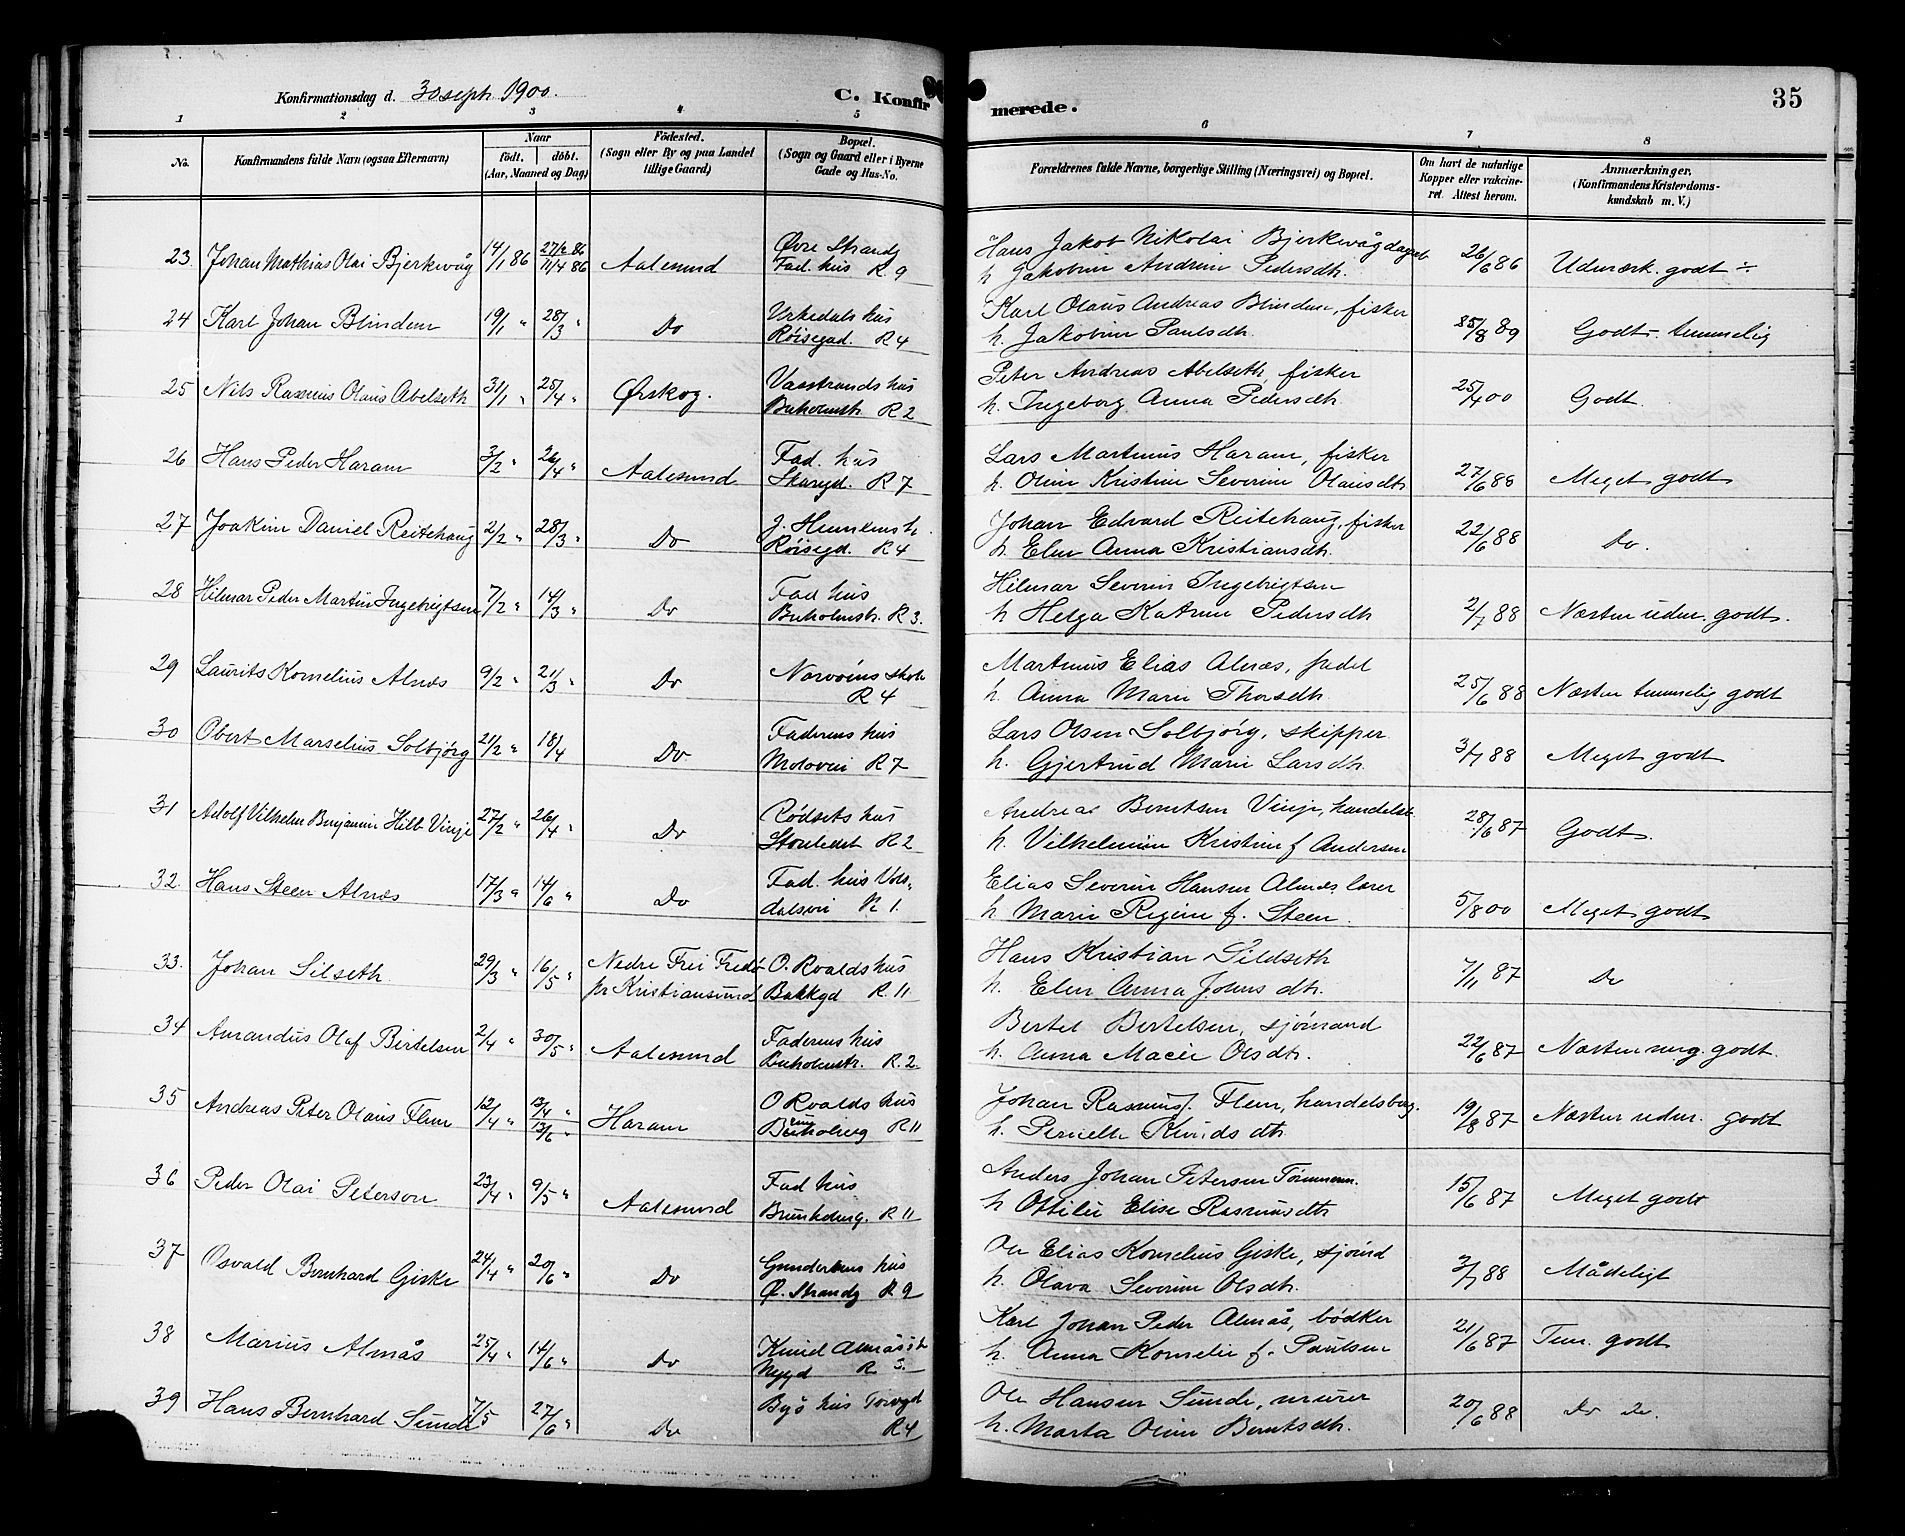 Konfirmationsdag d. 30 sept. 1900.
C. Konfir
merede.
35
1 2 3 4 5 6 7 8
No. Konfirmandens fulde Navn (ogsaa Efternavn) Naar født. døbt. (Aar, Maaned og Dag) Fødested. (Sogn eller By og paa Landet tillige Gaard) Bopæl. (Sogn og Gaard eller i Byerne Gade og Hus-No. Forældrenes fulde Navne, borgerlige Stilling (Næringsvei) og Bopæl. Om havt de naturlige Kopper eller vakcineret. Attest herom. Anmærkninger. (Konfirmandens Kristendomskundskab m. V.)
Øvre Strandg Hans Jakob Nikolai Bjerkevåg
23. Johan Mathias Olai Bjerkevåg 14/1 86 27/2 86 11/4 86 Aalesund Fad. hus R 9 h. Jakobine Andrine Pedersdtr. 26/6 86 Udmærk. godt ÷
Urkedals hus Karl Olaus Andreas Blindem, fisker
24 Karl Johan Blindem 19/1 " 28/3 " Do Røisegad. R 4 h. Jakobine Paulsdtr. 8 89 Godt - temmelig
Vasstrands hus Peter Andreas Abelseth, fisker
25 Nils Rasmus Olaus Abelseth 31/1 " 25/4 " Ørskog. Buholmstr. R 2 h. Ingeborg Anna Pedersdtr. 25/4 00 Godt.
Fad. hus Lars Martinus Haram, fisker
26 Hans Peder Haram 3/2 " 26/4 " Aalesund Skargd. R 7 h. Oline Kristine Severine Olausdtr 27/6 88 Meget godt
Johan Edvard Reitehaug, fisker
27 Joakim Daniel Reitehaug 2/2 " 28/3 " Do Røisegd. R 4 h. Elen Anna Kristiansdtr. 22/6 88 Do.
Fad hus Hilmar Severin Ingebrigtsen
28 Hilmar Peder Martin Ingebrigtsen 7/2 " 14/3 " Do Buholmstr. R 3. h Helga Katrine Pedersdtr 2/7 88 Næsten udm. godt.
Norvøens skole Martinus Elias Alnæs,
29 Laurits Kornelius Alnæs 9/2 " 21/3 " Do R 4 h. Anna Marie Thorsdtr. 25/6 88 Næsten temmelig godt
Faderens hus Lars Olsen Solbjørg, skipper
30 Obert Marselius Solbjørg 21/2 " 18/4 Do Moloveien R 7 h. Gjertrud Marie Larsdtr. 3/7 88 Meget godt
Rødsets hus Andreas Berntsen Vinje, handelsb.
31 Adolf Vilhelm Benjamin Hilb Vinje 27/2 " 26/4 " Do Storledet R 2 h. Vilhelmine Kristine f Andersen 28/6 87 Godt.
Fad. hus Vols- Elias Severin Hansen Alnæs lærer
32 Hans Steen Alnæs 17/3 " 14/6 " Do dalsvei R 1. h Marie Regine f. Steen. 5/8 00 Meget godt
Nedre Frei Fredø O. Roalds hus Hans Kristian Sildseth
33. Johan Silseth 29/3 " 16/5 " pr Kristiansund Bakkgd R. 11 h. Elen Anna Johns dtr. 7/11 87 Do
Faderens hus Bertel Bertelsen, sjømand
34 Amandus Olaf Bertelsen 2/4 " 30/5 " Aalesund Buholmstr. R. 2. h. Anna Marie Olsdtr. 22/6 87 Næsten meg. godt.
O Roalds hus Johan Rasmus Flem, handelsborg.
35 Andreas Peter Olaus Flem 12/4 " 13/4 " 13/6 " Haram R 11 h. Serielle Knudsdtr 19/8 87 Næsten udm. godt
Fad hus Anders Johan Petersen Tømmerm.
36 Peder Olai Peterson 23/4 " 9/5 " Aalesund Bunkeberg. R 11 h Ottilie Elise Rasmusdtr 15/6 87 Meget godt
Gundersens hus Ole Elias Kornelius Giske, sjømd
37 Osvald Bernhard Giske 24/4 " 20/6 " Do Ø. Strandg R 9 h. Olava Severine Olsdtr. 3/7 88 Mådeligt
Knud Almås's h Karl Johan Peder Almås, bødker
38 Marius Almås 25/4 " 14/6 " Do Nygd R 3. h. Anna Kornelie f. Paulsen 21/6 87 Tem. godt
Bys hus Torvgd Ole Hansen Sunde, murer
39 Hans Bernhard Sunde 7/5 27/6 " Do R 4 h. Marta Oline Berntsdtr. 20/6 88 Do Do.